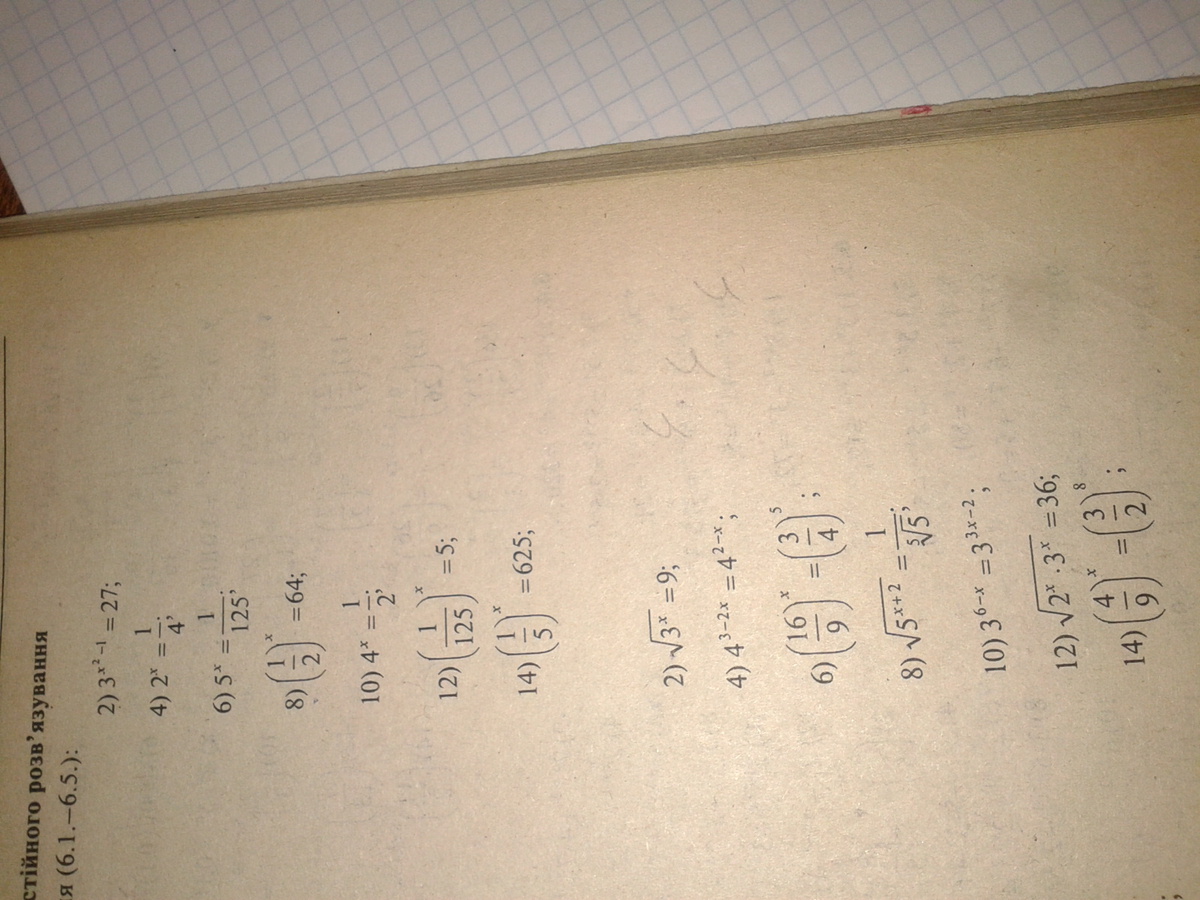 стійного розв'язування
я (6.1.–6.5.):
2) 3^{x^2-1} = 27;
4) 2^x = \frac{1}{4};
6) 5^x = \frac{1}{125};
8) \left(\frac{1}{2}\right)^x = 64;
10) 4^x = \frac{1}{2};
12) \left(\frac{1}{125}\right)^x = 5;
14) \left(\frac{1}{5}\right)^x = 625;
2) \sqrt{3^x} = 9;
4) 4^{3-2x} = 4^{2-x};
6) \left(\frac{16}{9}\right)^x = \left(\frac{3}{4}\right)^5;
8) \sqrt{5^{x+2}} = \frac{1}{\sqrt[5]{5}};
10) 3^{6-x} = 3^{3x-2};
12) \sqrt{2^x \cdot 3^x} = 36;
14) \left(\frac{4}{9}\right)^x = \left(\frac{3}{2}\right)^8;